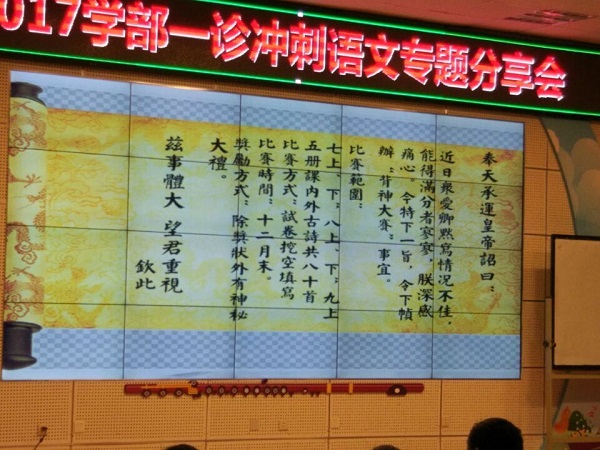 017学部一诊冲刺语文专题分享会
奉天承運皇帝詔曰：
近日衆愛卿默寫情況不佳，
能得滿分者寥寥，朕深感
痛心，今特下一旨，令下幀
辦“背神大賽”事宜。
比賽範圍：
七上、下；八上、下；九上
五册課内外古詩共八十首
比賽方式：試卷挖空填寫
比賽時間：十二月末。
獎勵方式：除獎狀外有神秘
大禮。
茲事體大 望君重視
欽此